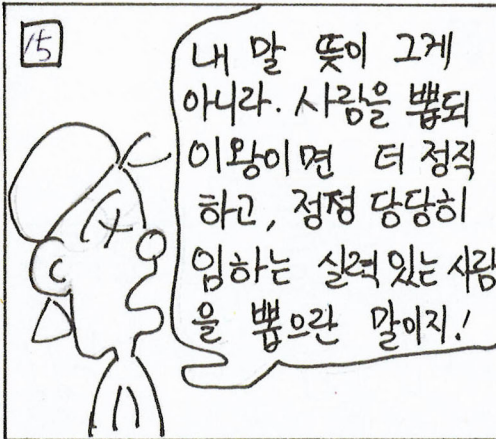 15
내 말 뜻이 그게
아니라. 사람을 뽑되
이왕이면 더 정직
하고, 정정 당당히
임하는 실력 있는 사람
을 뽑으란 말이지!